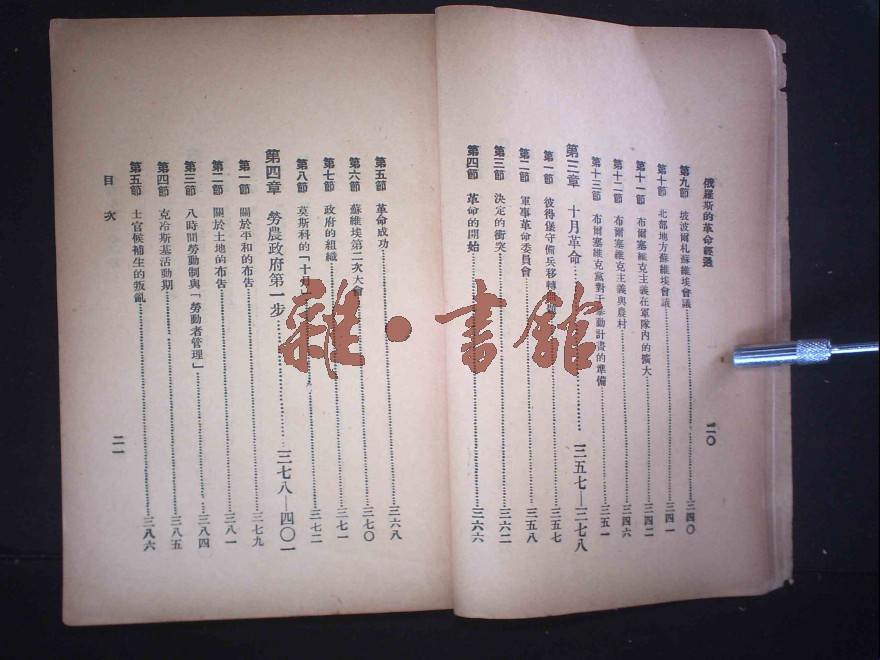 俄羅斯的革命經過
二〇
第九節 坡波爾札蘇維埃會議 三四〇
第十節 北部地方蘇維埃會議 三四一
第十一節 布爾塞維克主義在軍隊內的擴大 三四二
第十二節 布爾塞維克主義與農村 三四六
第十三節 布爾塞維克黨對于暴動計畫的準備 三五一
第三章 十月革命 三五七—三七八
第一節 彼得堡守備兵移轉 三五七
第二節 軍事革命委員會 三五八
第三節 決定的衝突 三六二
第四節 革命的開始 三六六
第五節 革命成功 三六八
第六節 蘇維埃第二次大會 三七〇
第七節 政府的組織 三七一
第八節 莫斯科的「十月」 三七二
第四章 勞農政府第一步 三七八—四〇一
第一節 關於平和的布告 三七九
第二節 關於土地的布告 三八一
第三節 八時間勞動制與「勞動者管理」 三八四
第四節 克冷斯基活動期 三八五
第五節 士官候補生的叛亂 三八六
目次
二一
雜·書館